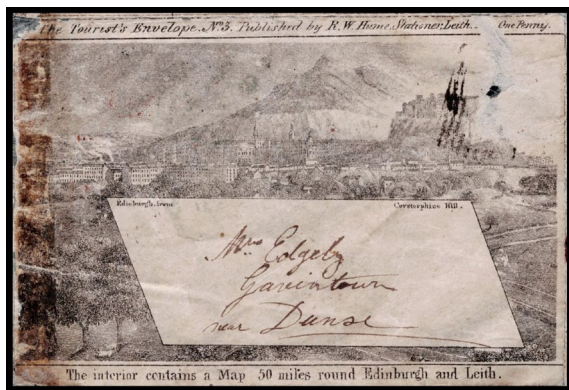 The Tourist's Envelope. No. 3. Published by R. W. Hume. Stationer, Leith. One Penny.
Edinburgh. from Corstorphine Hill.
Mrs Edgeby
Gavintown
near Dunse
The interior contains a Map 50 miles round Edinburgh and Leith.